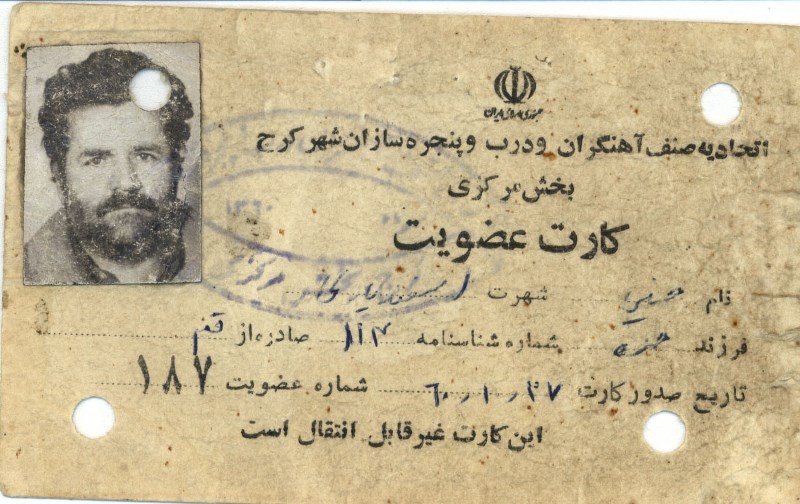 جمهوری اسلامی ایران
اتحادیه صنف آهنگران و درب و پنجره سازان شهر کرج
بخش مرکزی
کارت عضویت
نام شهرت
فرزند حمزه شماره شناسنامه ۱۱۴ صادره از قم
تاریخ صدور کارت ۶۰٫۱۰٫۲۷ شماره عضویت ۱۸۷
این کارت غیر قابل انتقال است